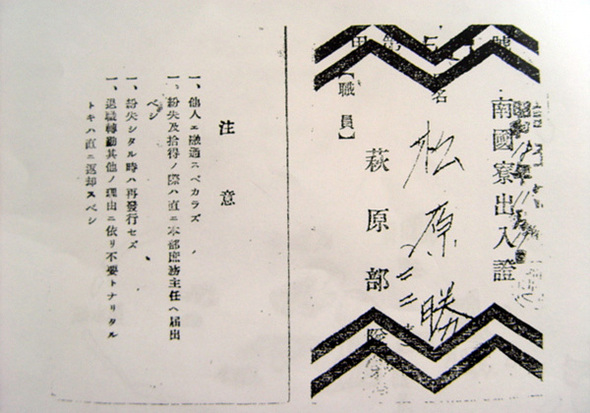 南國寮出入證
名 松原勝
萩原部隊
【職員】
注意
一、他人エ融通スベカラズ
一、紛失及拾得ノ際ハ直ニ本部庶務主任ヘ届出
ベシ
一、紛失シタル時ハ再發行セズ
一、退職轉勤其他ノ理由ニ依リ不要トナリタル
トキハ直ニ返却スベシ